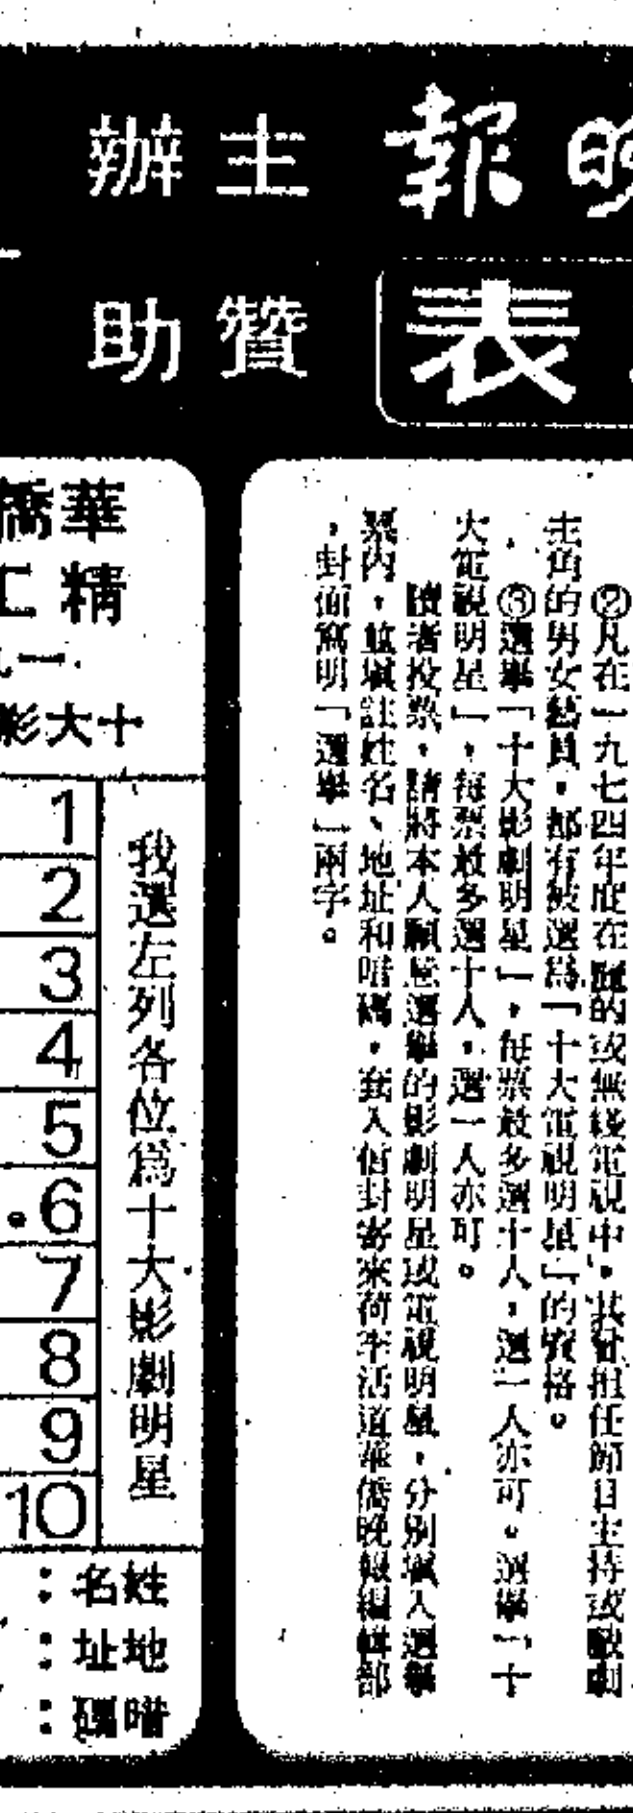 晚報主辦
表
贊助
②凡在一九七四年度在麗的或無綫電視中,其曾担任節目主持或戲劇
主角的男女藝員,都有被選爲「十大電視明星」的資格。
③選舉「十大影劇明星」,每票最多選十人,選一人亦可。選舉「十
大電視明星」,每票最多選十人,選一人亦可。
讀者投票,請將本人願意選舉的影劇明星或電視明星,分別塡入選舉
票內,並塡註姓名、地址和暗碼,套入信封寄來荷李活道華僑晚報編輯部
,封面寫明「選舉」兩字。
華僑
精工
一九
十大影
我選左列各位爲十大影劇明星
1
2
3
4
5
6
7
8
9
10
姓名:
地址:
暗碼: